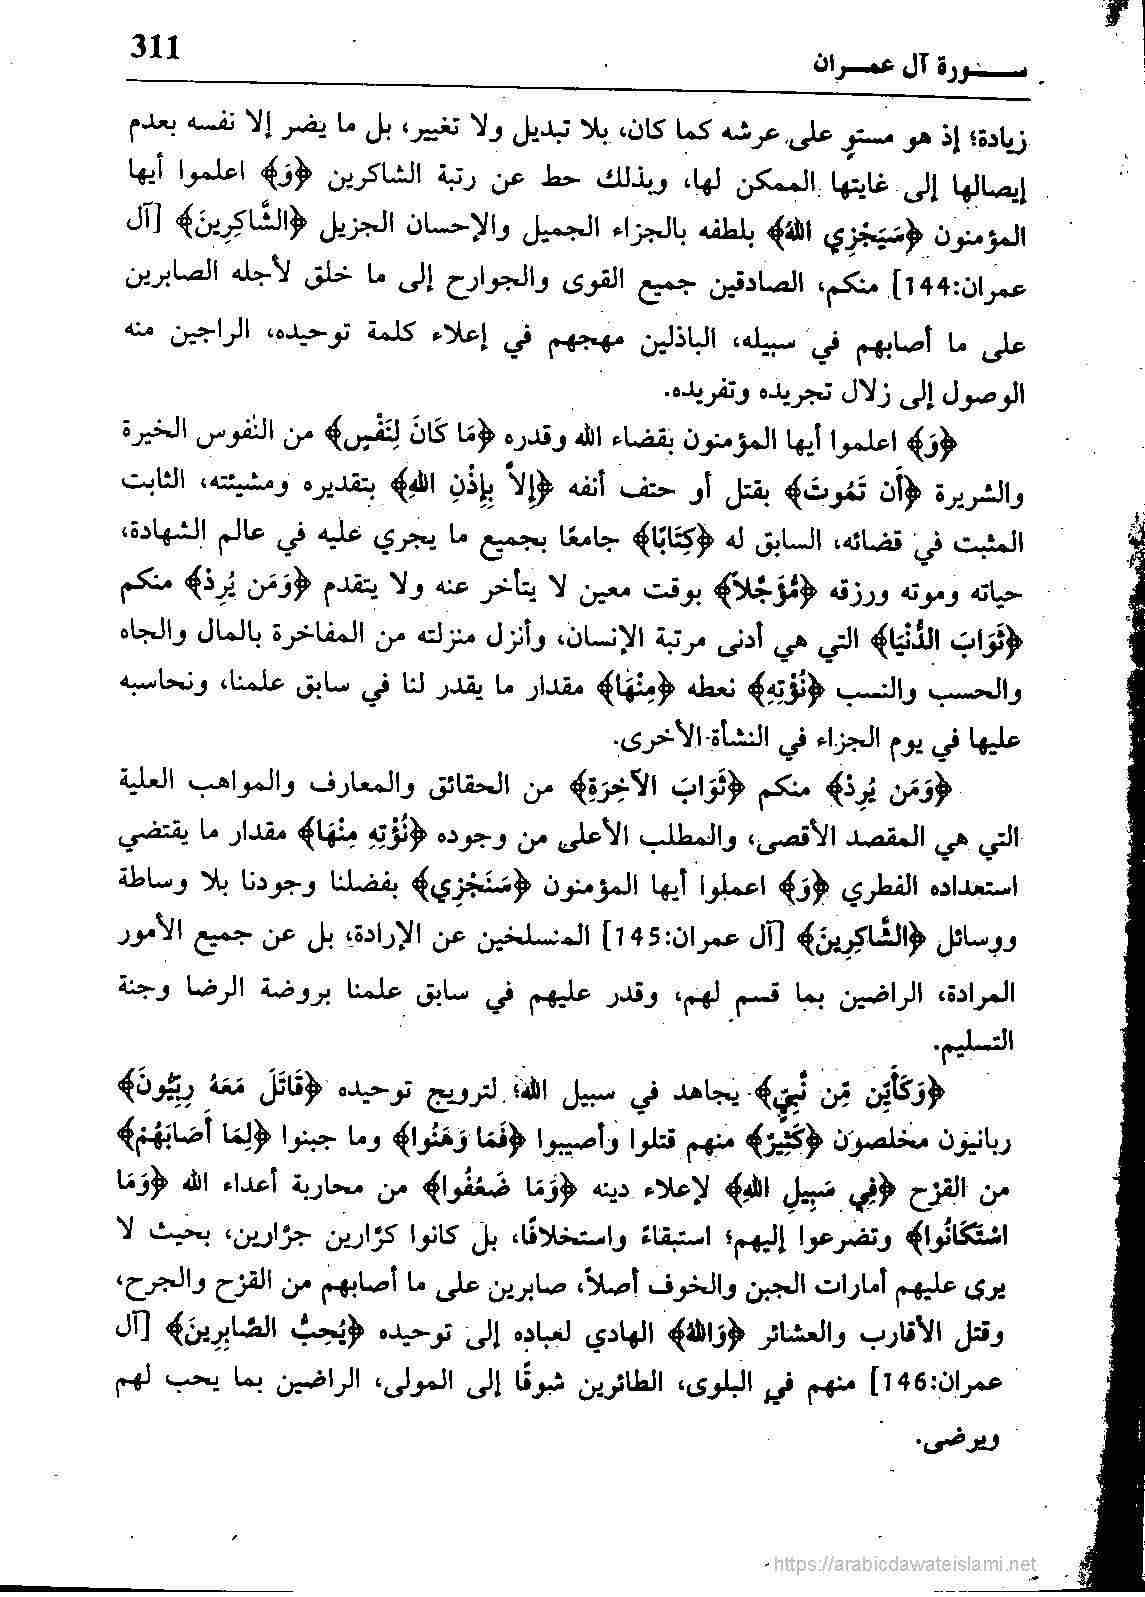 311
سورة آل عمران
زيادة؛ إذ هو مستوٍ على عرشه كما كان، بلا تبديل ولا تغيير، بل ما يضر إلا نفسه بعدم
إيصالها إلى غايتها الممكن لها، وبذلك حط عن رتبة الشاكرين ﴿وَ﴾ اعلموا أيها
المؤمنون ﴿سَيَجْزِي اللهُ﴾ بلطفه بالجزاء الجميل والإحسان الجزيل ﴿الشَّاكِرِينَ﴾ [آل
عمران:144] منكم، الصادقين جميع القوى والجوارح إلى ما خلق لأجله الصابرين
على ما أصابهم في سبيله، الباذلين مهجهم في إعلاء كلمة توحيده، الراجين منه
الوصول إلى زلال تجريده وتفريده.
﴿وَ﴾ اعلموا أيها المؤمنون بقضاء الله وقدره ﴿مَا كَانَ لِنَفْسٍ﴾ من النفوس الخيرة
والشريرة ﴿أَن تَمُوتَ﴾ بقتل أو حتف أنفه ﴿إِلاَّ بِإِذْنِ اللهِ﴾ بتقديره ومشيئته، الثابت
المثبت في قضائه، السابق له ﴿كِتَابًا﴾ جامعًا بجميع ما يجري عليه في عالم الشهادة،
حياته وموته ورزقه ﴿مُّؤَجَّلاً﴾ بوقت معين لا يتأخر عنه ولا يتقدم ﴿وَمَن يُرِدْ﴾ منكم
﴿ثَوَابَ الدُّنْيَا﴾ التي هي أدنى مرتبة الإنسان، وأنزل منزلته من المفاخرة بالمال والجاه
والحسب والنسب ﴿نُؤْتِهِ﴾ نعطه ﴿مِنْهَا﴾ مقدار ما يقدر لنا في سابق علمنا، ونحاسبه
عليها في يوم الجزاء في النشأة الأخرى.
﴿وَمَن يُرِدْ﴾ منكم ﴿ثَوَابَ الآخِرَةِ﴾ من الحقائق والمعارف والمواهب العلية
التي هي المقصد الأقصى، والمطلب الأعلى من وجوده ﴿نُؤْتِهِ مِنْهَا﴾ مقدار ما يقتضي
استعداده الفطري ﴿وَ﴾ اعملوا أيها المؤمنون ﴿سَنَجْزِي﴾ بفضلنا وجودنا بلا وساطة
ووسائل ﴿الشَّاكِرِينَ﴾ [آل عمران:145] المنسلخين عن الإرادة، بل عن جميع الأمور
المرادة، الراضين بما قسم لهم، وقدر عليهم في سابق علمنا بروضة الرضا وجنة
التسليم.
﴿وَكَأَيِّن مِّن نَّبِيٍّ﴾ يجاهد في سبيل الله؛ لترويج توحيده ﴿قَاتَلَ مَعَهُ رِبِّيُّونَ﴾
ربانيون مخلصون ﴿كَثِيرٌ﴾ منهم قتلوا وأصيبوا ﴿فَمَا وَهَنُوا﴾ وما جبنوا ﴿لِمَا أَصَابَهُمْ﴾
من القرْح ﴿فِي سَبِيلِ اللهِ﴾ لإعلاء دينه ﴿وَمَا ضَعُفُوا﴾ من محاربة أعداء الله ﴿وَمَا
اسْتَكَانُوا﴾ وتضرعوا إليهم؛ استبقاءً واستخلافًا، بل كانوا كرَّارين جرَّارين، بحيث لا
يرى عليهم أمارات الجبن والخوف أصلاً، صابرين على ما أصابهم من القرْح والجرح،
وقتل الأقارب والعشائر ﴿وَاللهُ﴾ الهادي لعباده إلى توحيده ﴿يُحِبُّ الصَّابِرِينَ﴾ [آل
عمران:146] منهم في البلوى، الطائرين شوقًا إلى المولى، الراضين بما يحب لهم
ويرضى.
https://arabicdawateislami.net